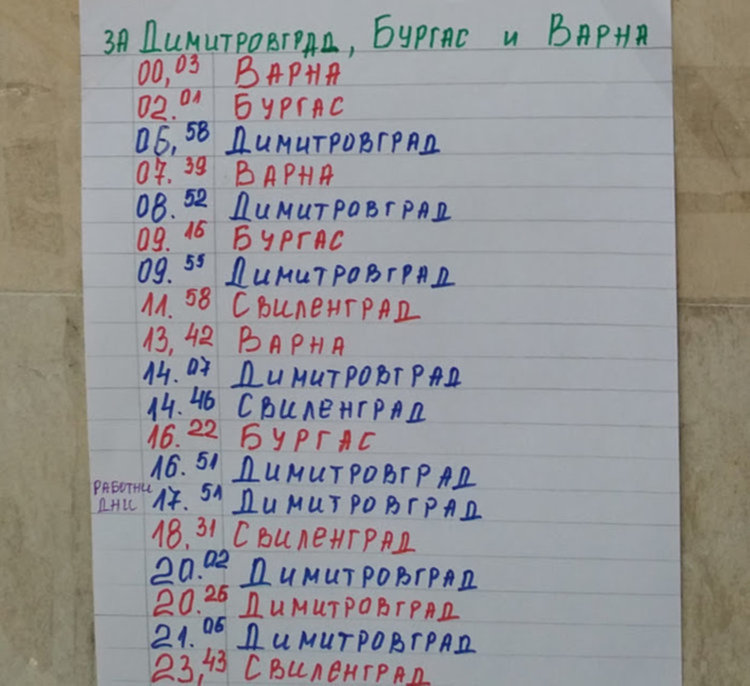 ЗА ДИМИТРОВГРАД, БУРГАС И ВАРНА
00,03 ВАРНА
02.01 БУРГАС
06,58 ДИМИТРОВГРАД
07.39 ВАРНА
08.52 ДИМИТРОВГРАД
09.16 БУРГАС
09.55 ДИМИТРОВГРАД
11.58 СВИЛЕНГРАД
13,42 ВАРНА
14.07 ДИМИТРОВГРАД
14.46 СВИЛЕНГРАД
16.22 БУРГАС
16.51 ДИМИТРОВГРАД
РАБОТНИ ДНИ 17.51 ДИМИТРОВГРАД
18,31 СВИЛЕНГРАД
20.02 ДИМИТРОВГРАД
20.26 ДИМИТРОВГРАД
21.06 ДИМИТРОВГРАД
23,43 СВИЛЕНГРАД